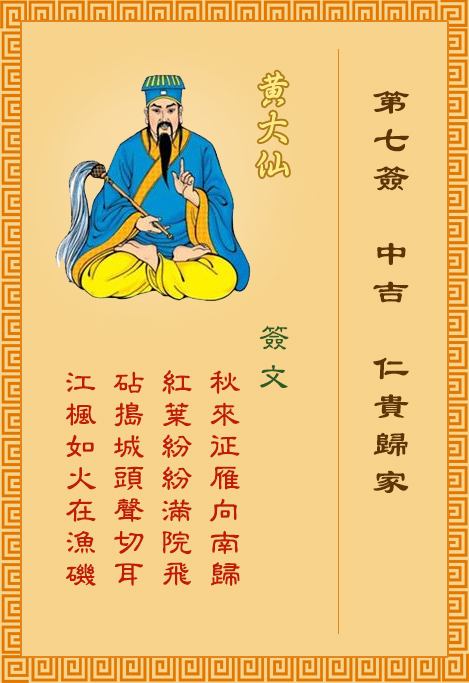 第七簽 中吉 仁貴歸家
黃大仙
簽文
秋來征雁向南歸
紅葉紛紛滿院飛
砧搗城頭聲切耳
江楓如火在漁磯